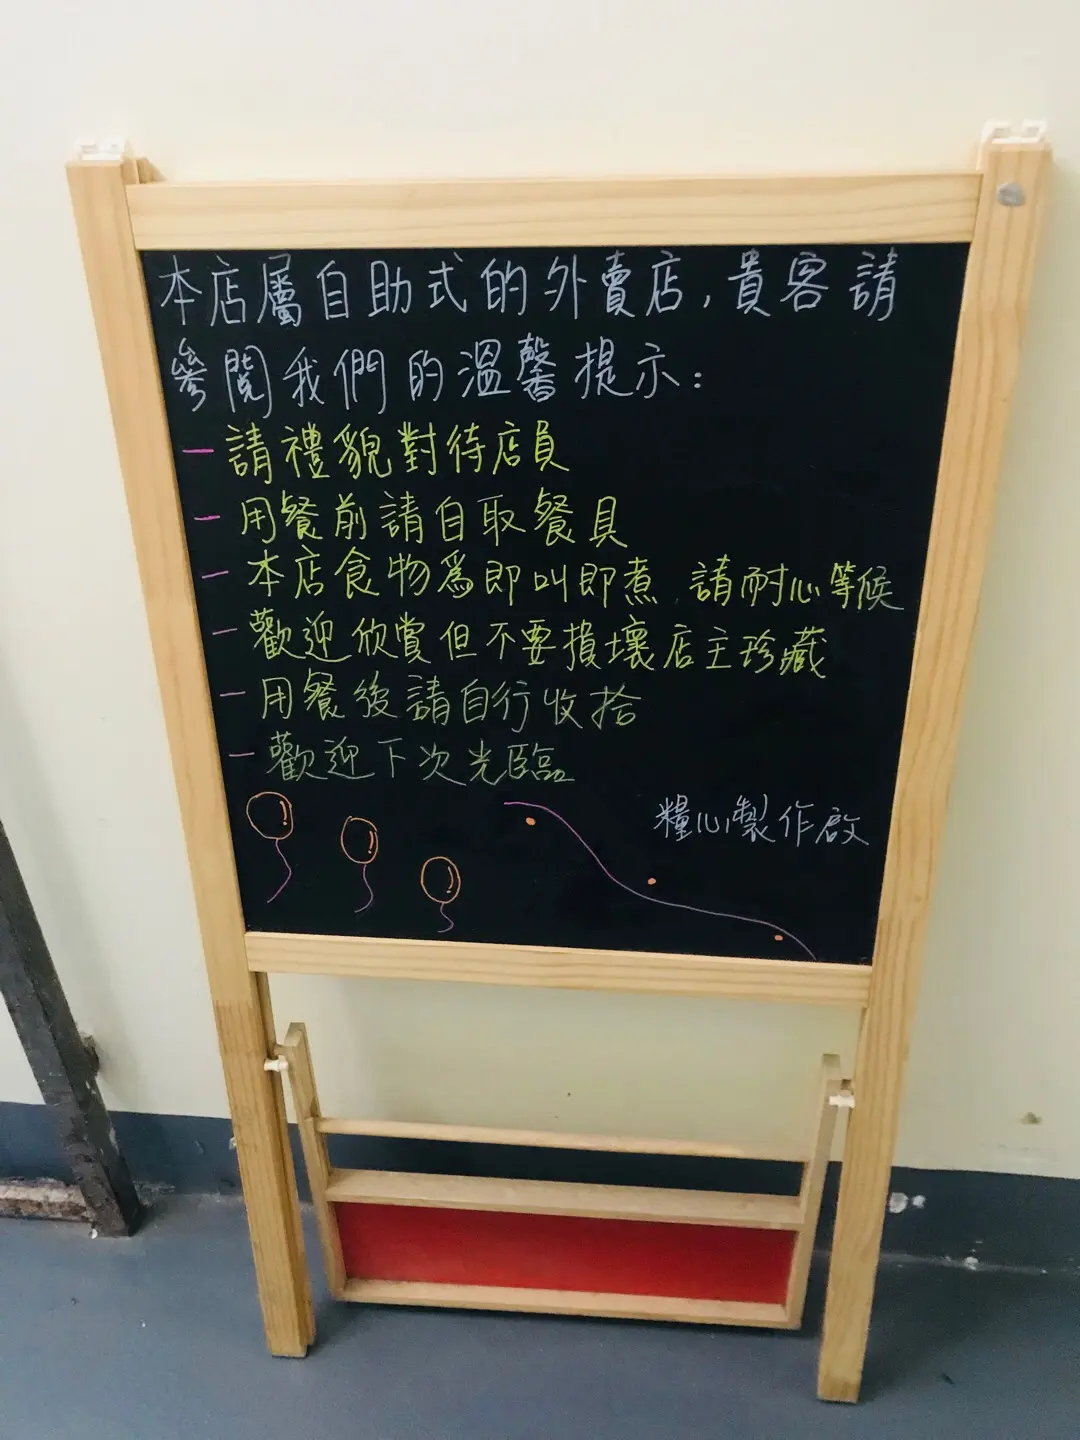 本店屬自助式的外賣店，貴客請
參閱我們的溫馨提示：
- 請禮貌對待店員
- 用餐前請自取餐具
- 本店食物爲即叫即煮，請耐心等候
- 歡迎欣賞但不要損壞店主珍藏
- 用餐後請自行收拾
- 歡迎下次光臨
糧心製作啟